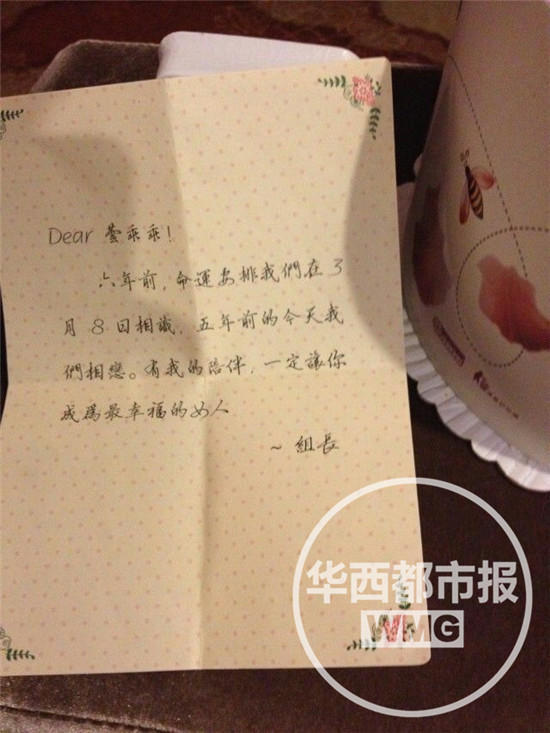 Dear 萱乖乖！
六年前，命運安排我們在3
月8日相識，五年前的今天我
們相戀。有我的陪伴，一定讓你
成爲最幸福的女人
~ 組長
华西都市报
WMG